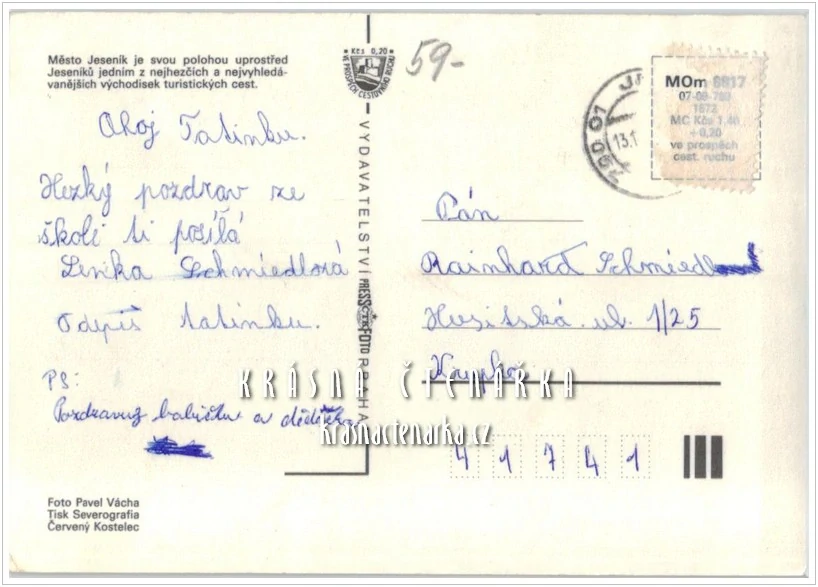 Město Jeseník je svou polohou uprostřed
Jeseníků jedním z nejhezčích a nejvyhledá-
vanějších východisek turistických cest.
Ahoj Tatinku.
Hezký pozdrav ze
školi ti posílá
Lenka Schmiedlová
odpiš tatinku.
PS:
Pozdravuj babičku a dědečka
Foto Pavel Vácha
Tisk Severografia
Červený Kostelec
Kčs 0,20
VE PROSPĚCH CESTOVNÍHO RUCHU
VYDAVATELSTVÍ PRESSFOTO PRAHA
ČTK
59-
790 01
13.1
MOm 6917
1972
MC Kčs 1,40
+ 0,20
ve prospěch
cest. ruchu
Pán
Rainhard Schmiedl
Husitská ul. 1/25
Krupka
41741
KRÁSNÁ ČTENÁŘKA
krasnactenarka.cz